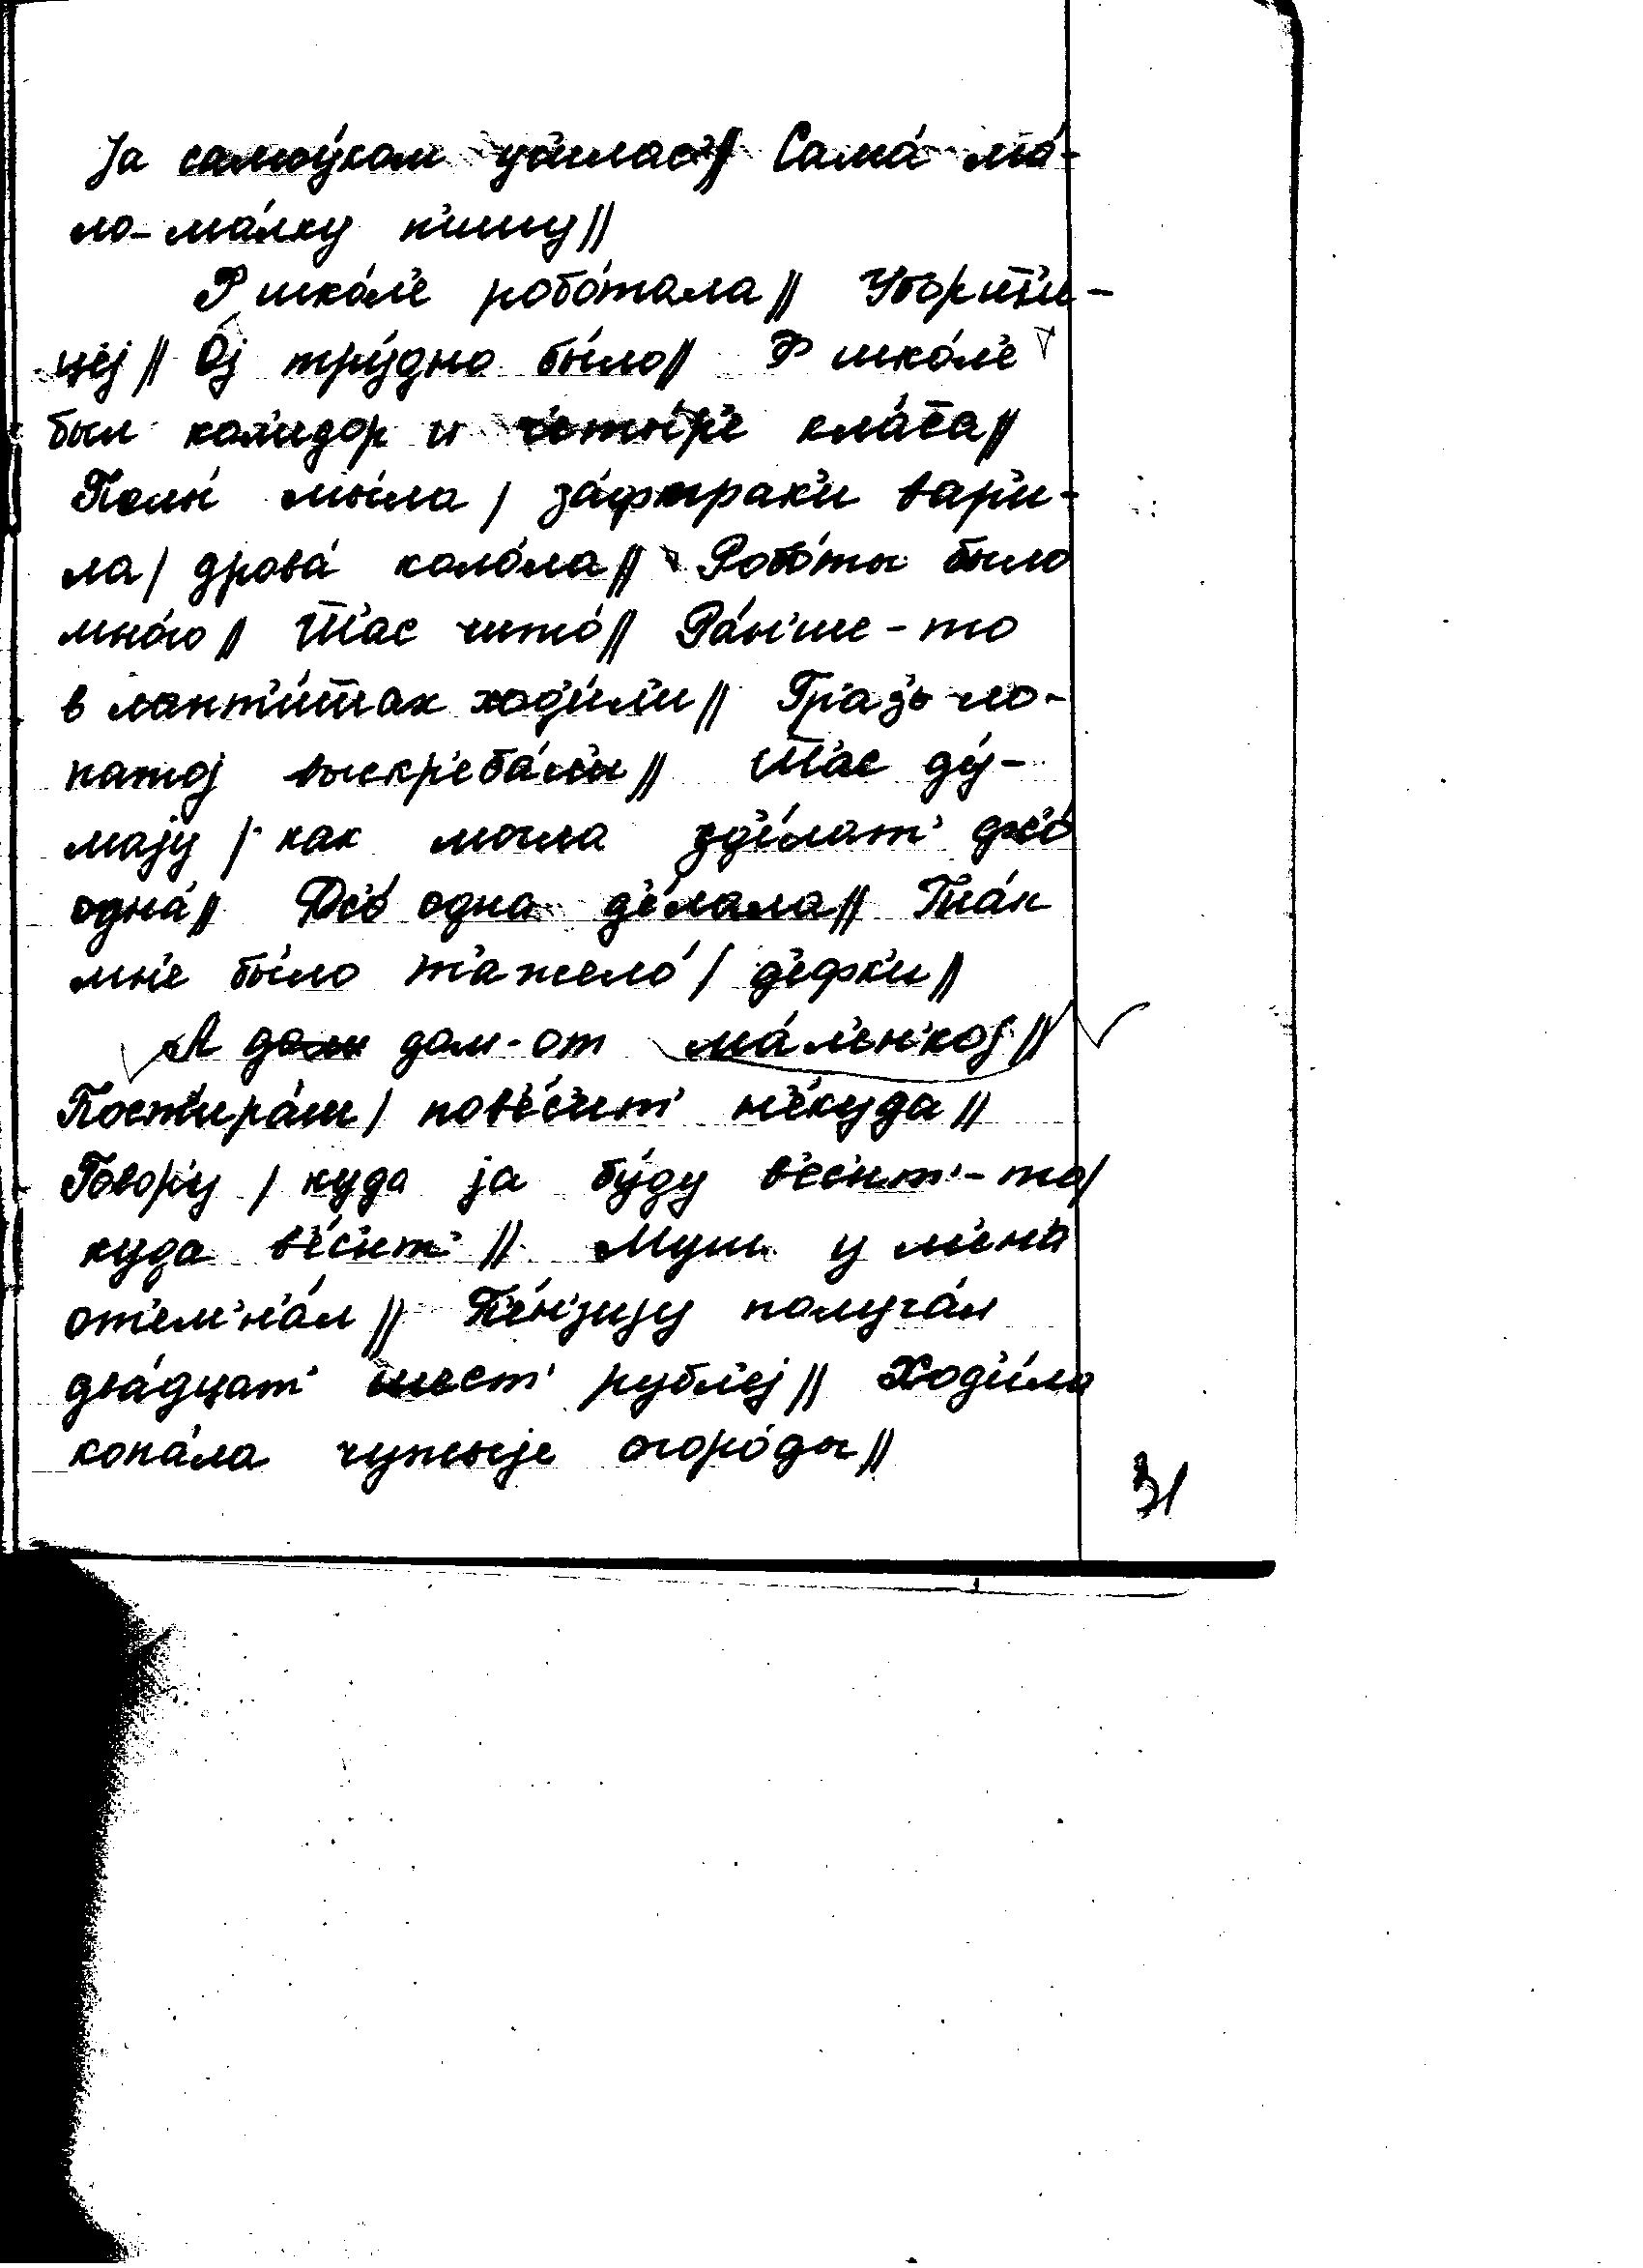 Jа самоу́ком уч'илас'// Сама́ ма́-
ло-ма́лку п'ишу//
Ф шко́л'е робо́тала// Убори́т'и-
цеj// Оj тру́дно бы́ло// Ф шко́л'е
был кал'идор и четы́р'е кла́са//
Полы́ мы́ла/ за́фтрак'и вар'и-
ла/ дрова́ коло́ла// Робо́ты было
мно́го// Т'ас чито́// Ра́н'ше-то
в лапт'и́шках ход'и́л'и// Гр'аз'ь ло-
патоj выскр'еба́л'и// Т'ас ду́-
маjу/ как могла зд'е́лат' фс'о́
одна́// Фс'о́ одна д'е́лала// Та́к
мн'е бы́ло т'ажело́/ д'е́фк'и//
А дом-от ма́л'ен'коj//
Пост'ира́ш/ пов'е́с'ит' н'е́куда//
Говор'у/ куда jа бу́ду в'е́с'ит'-то/
куда в'е́с'ит'// Муш у м'ен'а
от'емн'а́л// П'е́нз'иjу получа́л
два́дцат' шест' рубл'еj// Ход'и́ла
копа́ла чужыjе огоро́ды//
31